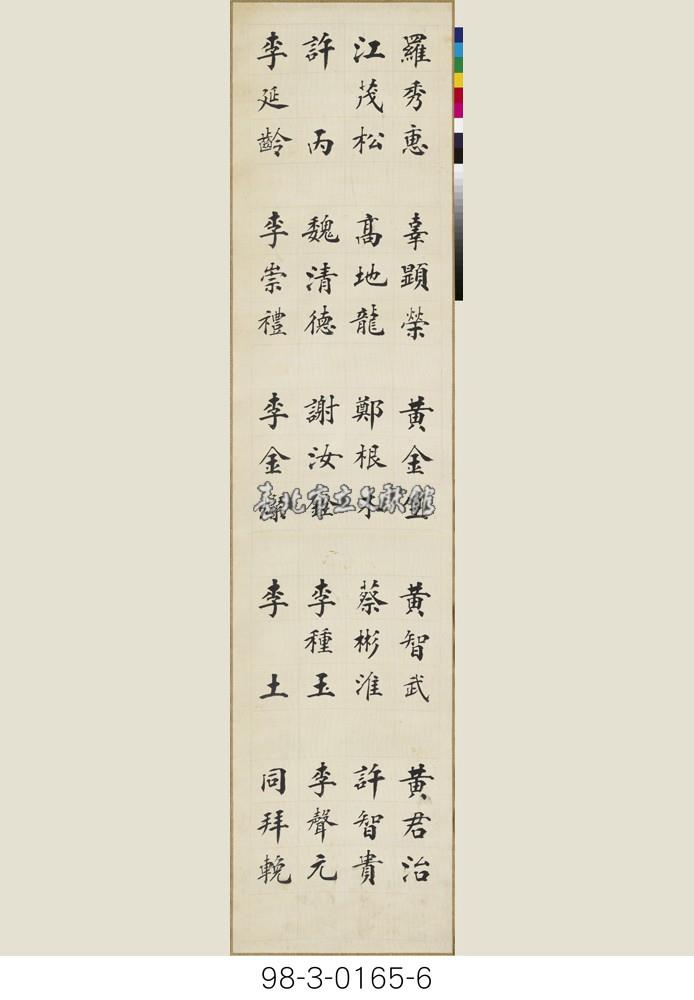 羅秀惠 辜顯榮 黃金 黃智武 黃君治
江茂松 高地龍 鄭根木 蔡彬淮 許智貴
許 丙 魏清德 謝汝銓 李種玉 李聲元
李延齡 李崇禮 李金 李 土 同拜輓
臺北市立文獻館
98-3-0165-6